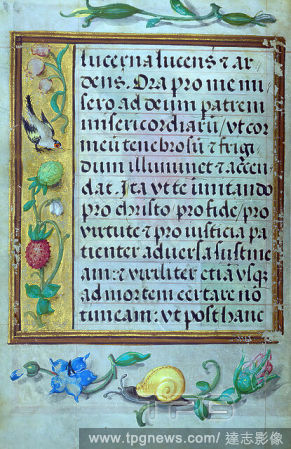 lucerna lucens & ar
dens. Ora pro me mi
sero ad deum patrem
misericordiarū, vt cor
meū tenebrosū & frigi
dum illuminet & accen
dat. Ita vt te imitando
pro christo pro fide, pro
virtute & pro iusticia pa
tienter aduersa sustine
am: & viriliter etiā vsq
ad mortem certare nō
timeam: vt post hanc
www.tpgnews.com / 達志影像